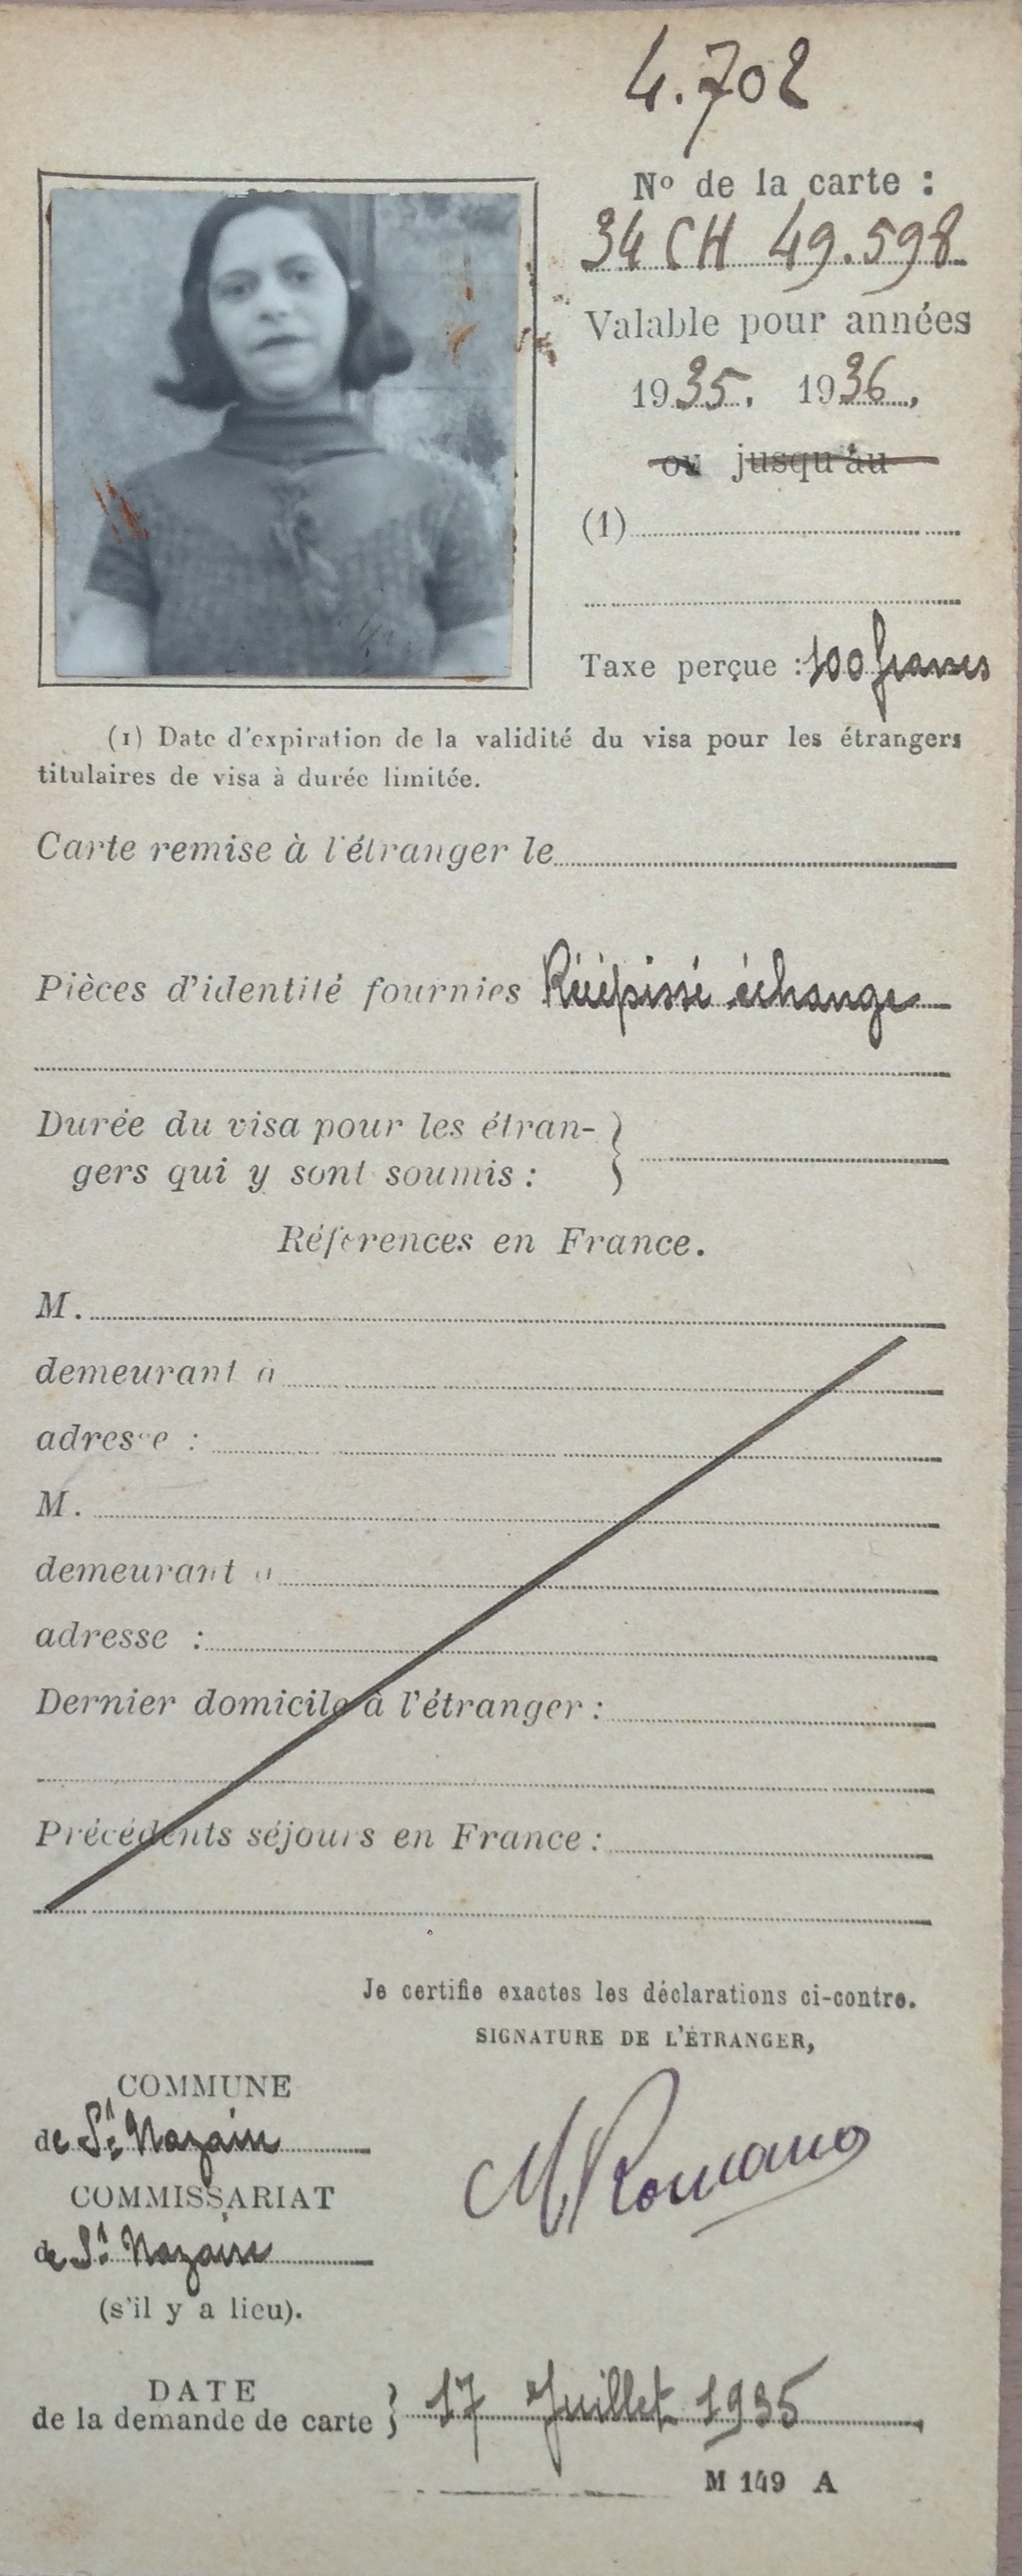 4.702
Nº de la carte :
34 CH 49.598
Valable pour années
1935. 1936.,
ou jusqu'au
(1)
Taxe perçue : 100 francs
(1) Date d'expiration de la validité du visa pour les étrangers
titulaires de visa à durée limitée.
Carte remise à l'étranger le
Pièces d'identité fournies Récépissé échange
Durée du visa pour les étran- }
gers qui y sont soumis :
Références en France.
M.
demeurant à
adresse :
M.
demeurant à
adresse :
Dernier domicile à l'étranger :
Précédents séjours en France :
Je certifie exactes les déclarations ci-contre.
SIGNATURE DE L'ÉTRANGER,
COMMUNE
de St Nazaire
M Romano
COMMISSARIAT
de St Nazaire
(s'il y a lieu).
DATE
de la demande de carte } 17 Juillet 1935
M 149 A